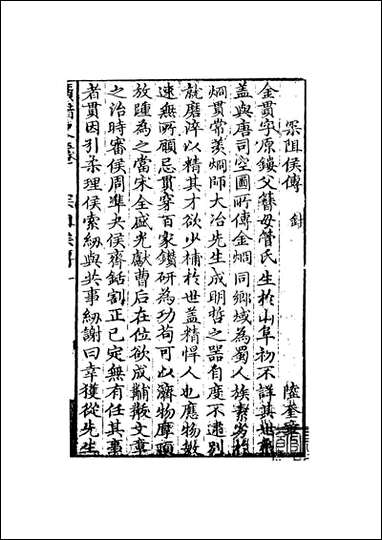 罙阻侯傳 針
陸奎章
金貫字原鏤父簪母管氏生於山阜初不詳其世系
蓋與唐司空圖所傳金炯同鄉域為蜀人族素劣於
炯貫常羨炯師大冶先生成明哲之器自度不逮別
就磨淬以精其才欲少補於世蓋精悍人也應物數
速無所顧忌貫穿百家鑚研為功苟可以濟物摩頂
放踵為之當宋全盛光獻曹后在位欲成黼黻文章
之治時審侯周準夬侯齊銛割正已定無有任其事
者貫因引柔理侯索紉與共事紉謝曰幸獲從先生